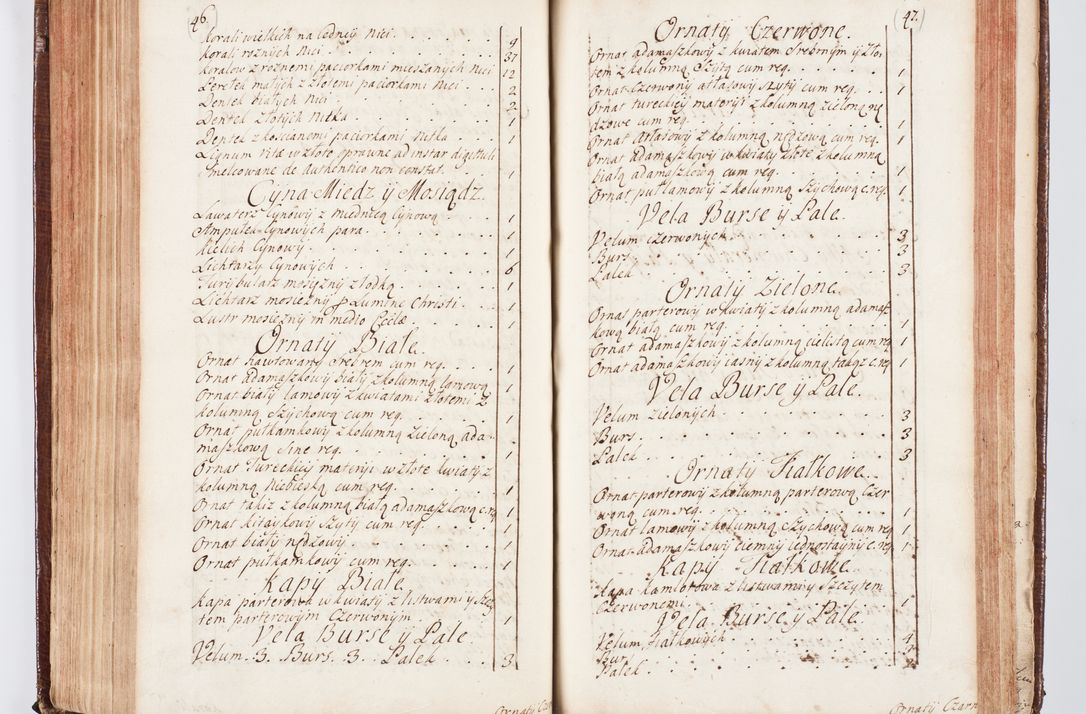 46.
Korali wielkich na iedneij nici . 9
Korali roznych Nici . 37
Koralow z roznemi paciorkami mieszanych Nici 12
Peretek małych z złotemi paciorkami Nici . 2
Dentek białych Nici . 2
Dentek złotych Nitka . 1
Dentek z koscianemi paciorkami Nitka . 1
Lignum Vitæ w złoto oprawne ad instar digituli
Smelcowane de authentico non constat . 1
Cyna Miedz ÿ Mosiądz.
Lawaterz Cynowÿ z miednicą Cynową . 1
Ampułek Cynowych para . 1
Kielich Cynowÿ . 1
Lichtarzÿ Cynowÿch . 6
Turÿbularz mosięznÿ z łodką . 1
Lichtarz mosieznÿ p Lumine Christi . 1
Lustr mosieznÿ in medio Ecclæ . 1
Ornatÿ Białe.
Ornat hawtowanÿ Srebrem cum req. . 1
Ornat adamaszkowÿ białÿ z kolumną lamową . 1
Ornat białÿ lamowÿ z kwiatami złotemi z
kolumną Szÿchową cum req. . 1
Ornat putkamkowÿ z kolumną Zieloną ada-
maszkową Sine req. . 1
Ornat Tureckieij materÿi w złote kwiatÿ z
kolumną Niebieską cum req. . 1
Ornat takiz z kolumną białą adamaszkową c. req 1
Ornat kitaÿkowÿ Szÿtÿ cum req . 1
Ornat białÿ nędzowÿ . 1
Ornat putkamkowÿ cum req. . 1
Kapÿ Białe
Kapa parterowa w kwiatÿ z listwami ÿ Szcÿ-
tem parterowÿm Czerwonÿm . 1
Vela Burse ÿ Pale
Velum . 3. Burs . 3 . Palek . 3
Ornatÿ Czar
47.
Ornatÿ Czerwone.
Ornat adamaszkowÿ z kwiatem Srebrnÿm ÿ Zło-
tem z kolumną Szÿtą cum req. . 1
Ornat Czerwonÿ atłasowÿ Szÿtÿ cum req. . 1
Ornat tureckieÿ materÿi z kolumną zieloną nę
dzowe cum req. . 1
Ornat Atłasowÿ z kolumną nędzową cum req. . 1
Ornat adamaszkowÿ w kwiatÿ złote z kolumną
białą adamaszkową cum req. . 1
Ornat putlamowÿ z kolumną Szÿchową c. req. 1
Vela Burse ÿ Pale.
Velum czerwonÿch . 3
Burs . 3
Palek . 3
Ornatÿ Zielone.
Ornat parterowÿ w kwiatÿ z kolumną adamasz
kową białą cum req. . 1
Ornat adamaszkowÿ z kolumną cielistą cum req 1
Ornat adamaszkowÿ iasnÿ z kolumną takąz c. req 1
Vela Burse ÿ Pale.
Velum zielonÿch . 3
Burs . 3
Palek . 3
Ornatÿ Fiałkowe.
Ornat parterowÿ z kolumną parterową Czer
woną cum req. . 1
Ornat lamowÿ z kolumną Szÿchową cum req 1
Ornat adamaszkowÿ ciemnÿ iednostaÿnÿ c. req. 1
Kapÿ Fiałkowe
Kapa kamlotowa z listwamiÿ Szczÿtem
Czerwonemi . 1
Vela Burse ÿ Pale.
Velum Fiałkowÿch . 4
Bur
Palek .
Ornatÿ Czarn